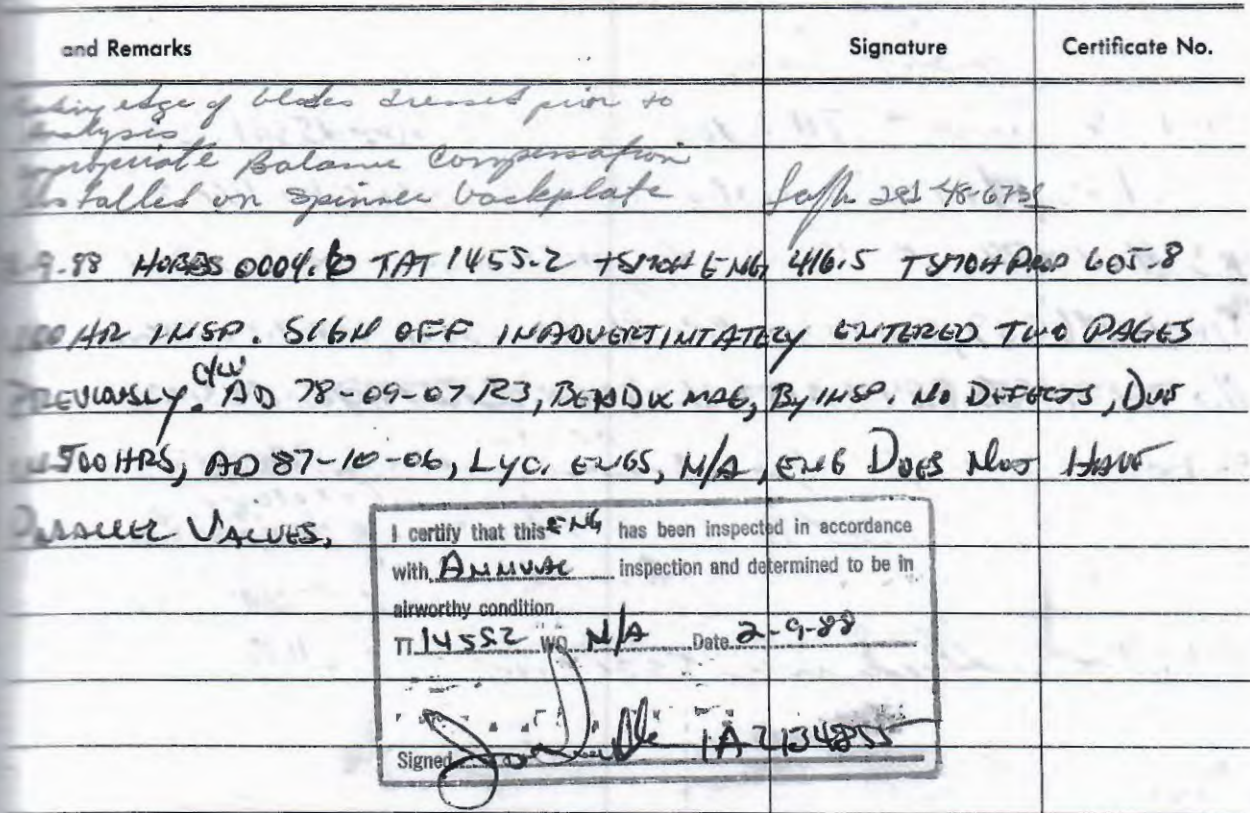 and Remarks Signature Certificate No.
edge of blades dressed prior to
analysis
appropriate Balance Compensation
installed on Spinner backplate 281-48-6738
-9-88 HOBBS 0004.6 TAT 1455.2 TSMOH ENG, 416.5 TSMOH PROP 605.8
100 HR INSP. SIGN OFF INADVERTINTATELY ENTERED TWO PAGES
PREVIOUSLY. C/W AD 78-09-07 R3, BENDIX MAG, By INSP. NO DEFECTS, DUE
IN 500 HRS, AD 87-10-06, LYC. ENGS, N/A, ENG DOES NOT HAVE
PARALLEL VALVES,
I certify that this ENG has been inspected in accordance
with ANNUAL inspection and determined to be in
airworthy condition.
TT 1455.2 WO N/A Date 2-9-88
Signed IA 2134855